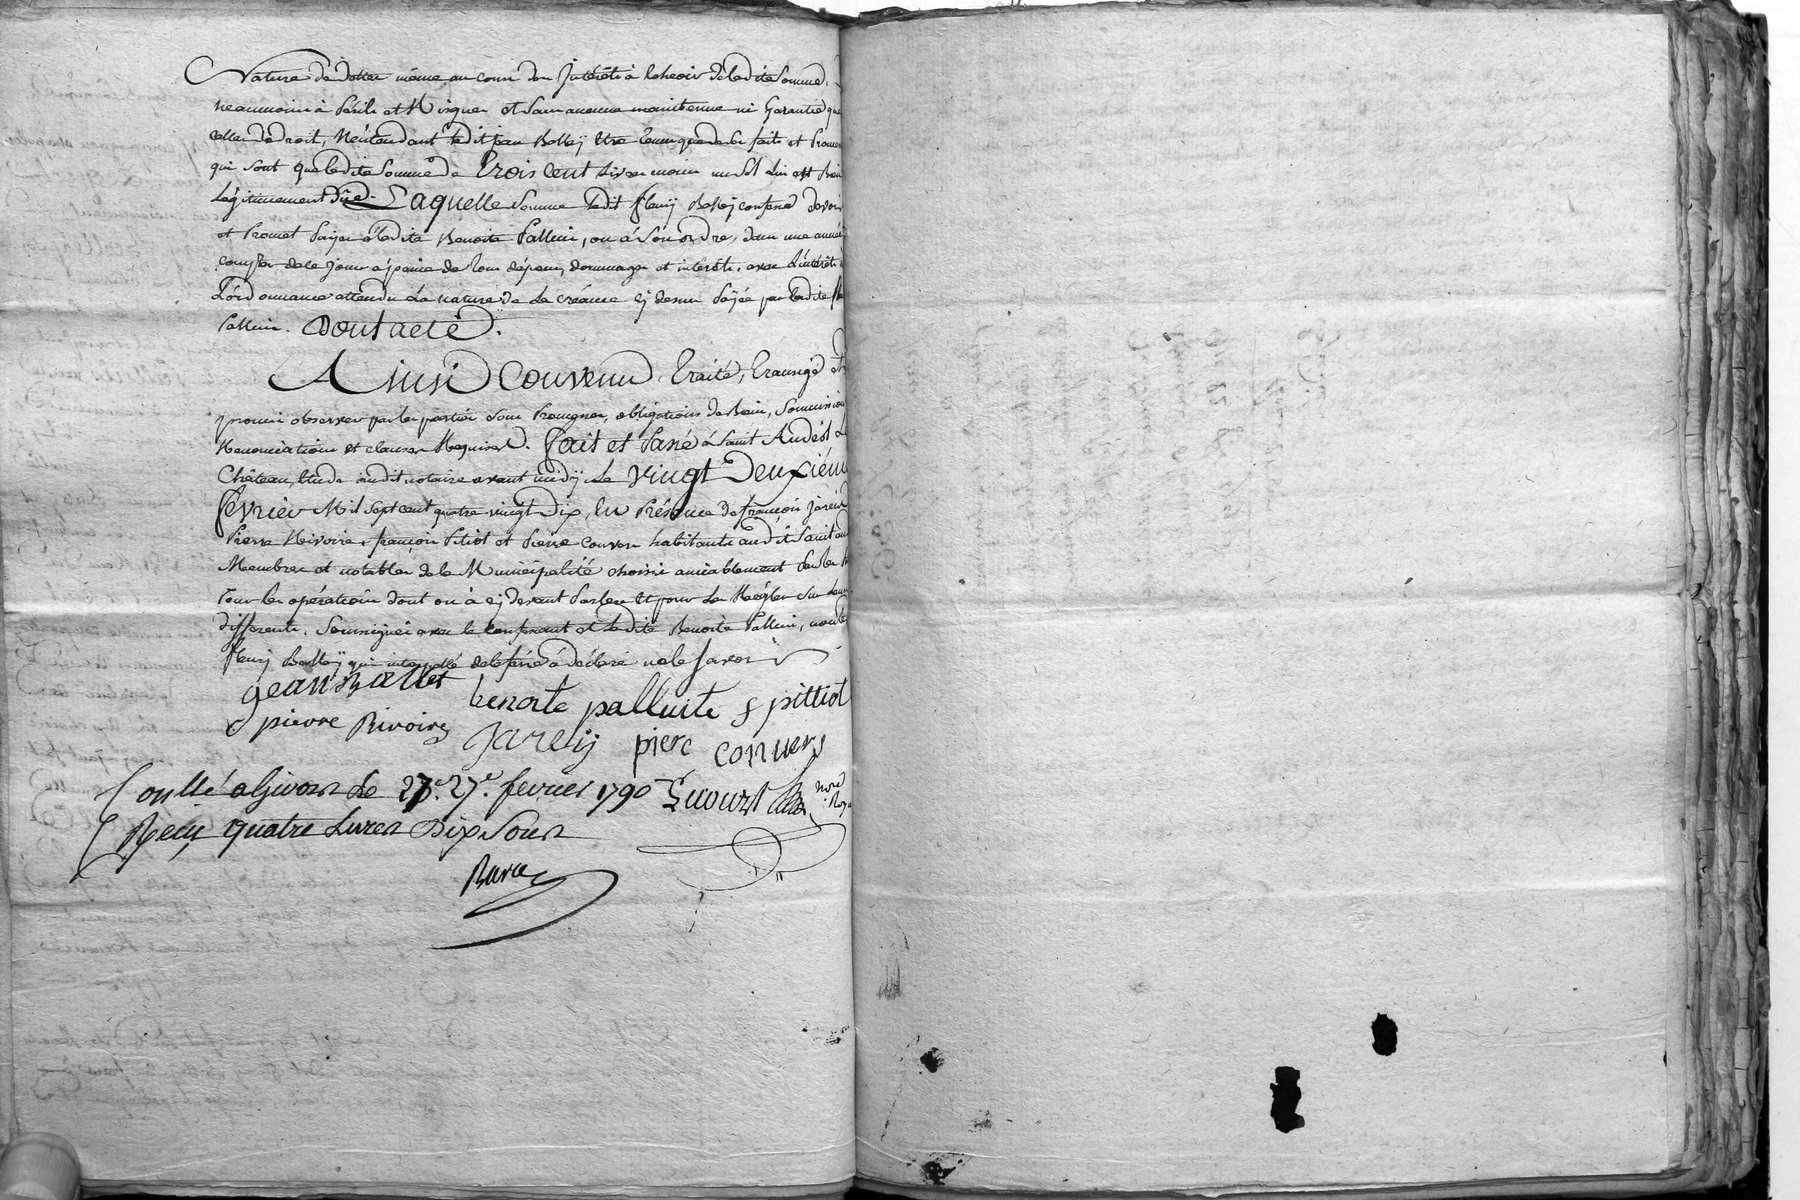 Nature de dotter même au cour des Intérêts à Echeoir de ladite Somme,
neanmoins à Périls et Risques et sans aucune maintenue ni Garantie que
celle de droit, N'entendant ledit jean Balley Etre tenu que de ses faits et Prome
qui sont que ladite Somme de Trois Cent Livres moins un Sol lui est Bien
Légitimement Düe. Laquelle Somme ledit fleury Balley confesse devoir
et Promet Payer à ladite Benoite Palluis, ou à Son ordre, dans une année
compter de ce jour à peine de tous dépens, dommages et intérêts, avec L'intérêt
L'ordonnance attendu La nature de La créance cy dessus Payée par ladite
Palluis. Dont acte.
Ainsi Convenu, Traité, Transigé et
promis observer par les parties sous Promesses, obligations de Biens, Soumissions
Renonciations et clauses Requises. fait et Passé à Saint Andéol Le
Château, Etude dudit notaire avant midy Le vingt Deuxiém
février Mil Sept cent quatre vingt Dix, En Présence de françois jareid
Pierre Rivoire, françois Pitiot et Pierre Couvers habitants audit Saint and
Membres et notables de la Municipalité choisis amiablement par les
Pour les opérations dont on à cy devant Parlé Et pour Les Régler Sur Leurs
differents, Soussignés avec le confessant et ladite Benoite Palluis, non le
fleury Balley qui interpellé de le faire à déclaré ne le Savoir
gean Ballet benoite palluite f pittiot
pierre Rivoire Jareiy piere conuers
Conllé a Givors le 27e. 27e. fevrier 1790
Reçu quatre Livres Dix Sous